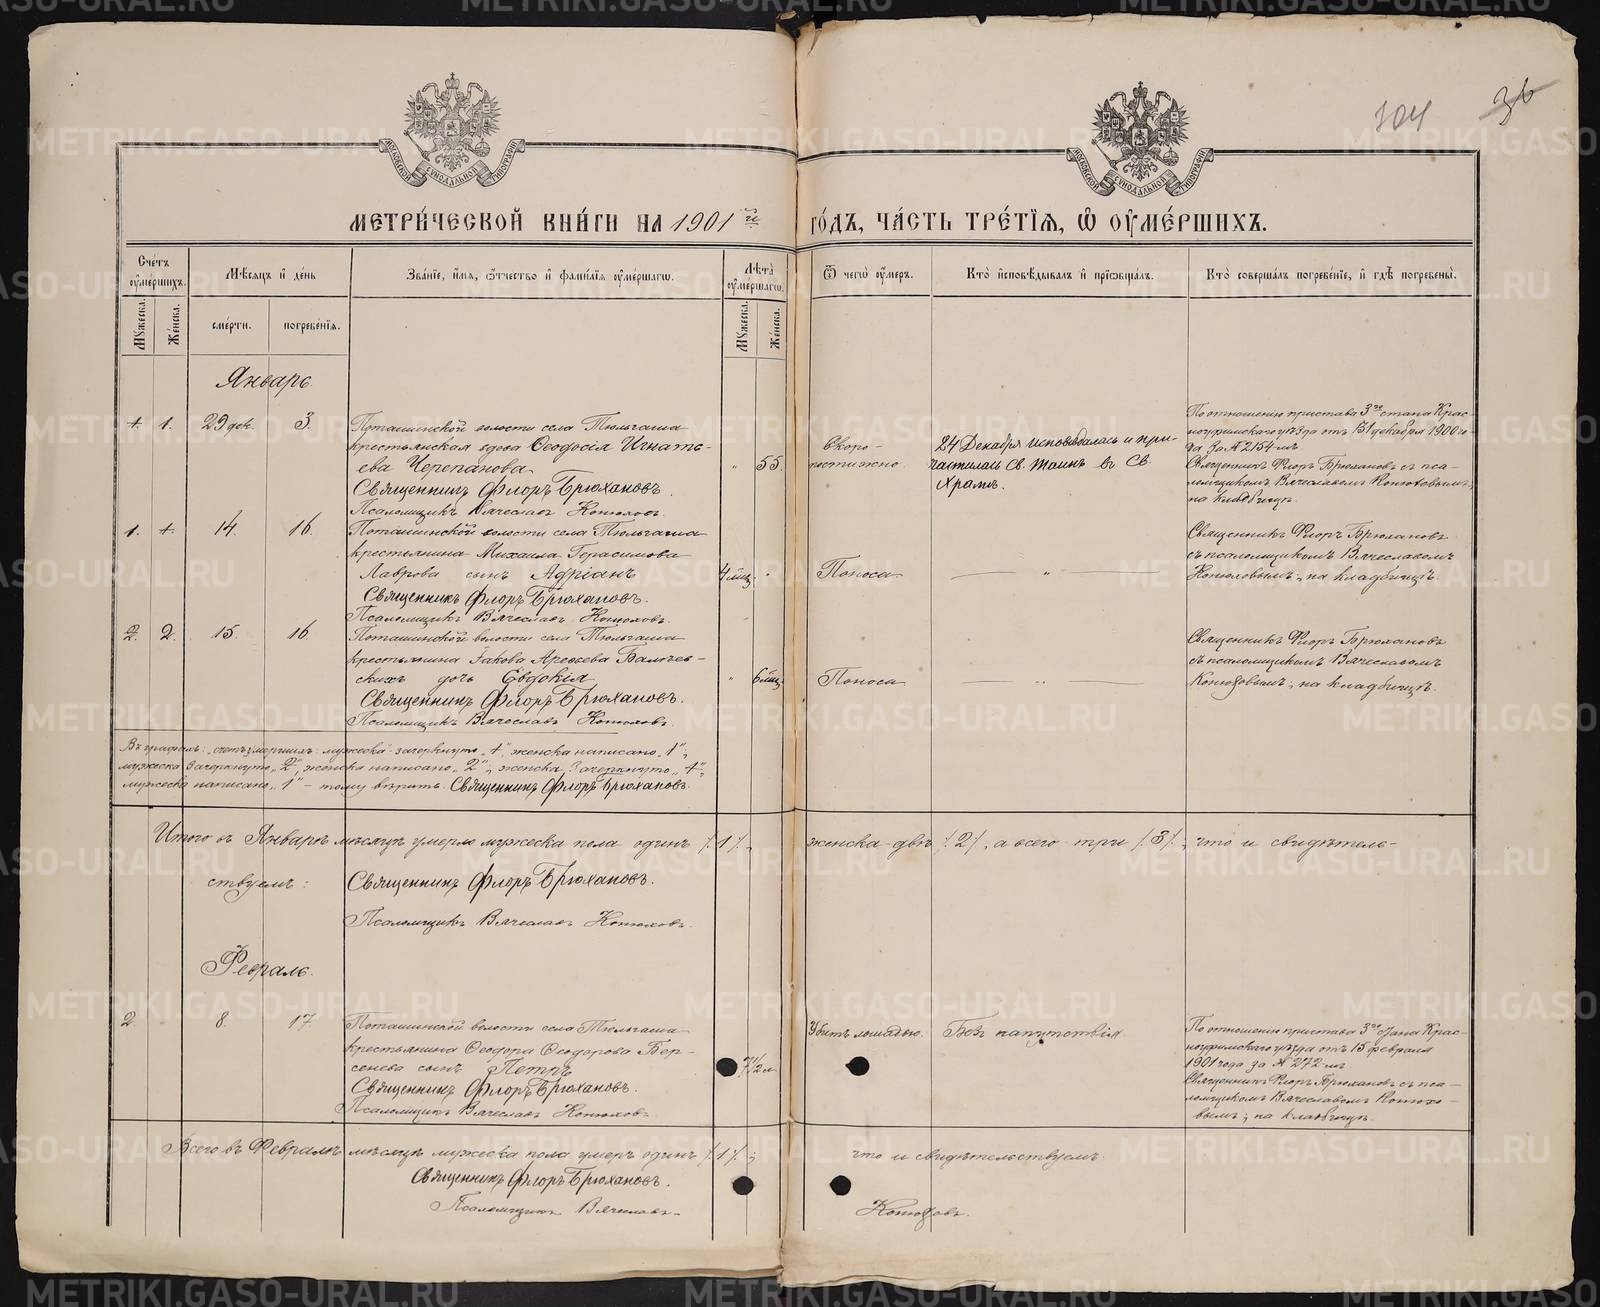 104
36
МОСКОВСКОЙ СУНОДАЛЬНОЙ ТИПОГРАФІИ
МОСКОВСКОЙ СУНОДАЛЬНОЙ ТИПОГРАФІИ
МЕТРИ́ЧЕСКОЙ КНИ́ГИ НА 1901 й ГО́ДЪ, ЧА́СТЬ ТРЕ́ТІЯ, Ѽ ОУМЕ́РШИХЪ.
Сче́тъ оумершихъ.
Мѣсяцъ и де́нь
Зва́ніе, и́мя, ѻтчество и фами́лія оуме́ршагѡ.
Лѣта̀ оуме́ршагѡ.
Ѿ чегѡ̀ оумеръ.
Кто̀ исповѣдывалъ и прїѡбщалъ.
Кто̀ соверша́лъ погребе́ніе, и гдѣ̀ погребены̀.
Мꙋжеска.
Же́нска.
сме́рти.
погребе́нїя.
Мꙋжеска.
Же́нска.
Январь.
1. 1. 29 дек. 3. Поташинской волости села Тюльгаша
крестьянская вдова Ѳеодосія Игнать-
ева Черепанова " 55.
Священникъ Флоръ Брюхановъ.
Псаломщикъ Вячеславъ Конюховъ.
Скоро-
постижно.
24 Декабря исповѣдалась и при-
частилась Св. Таинъ въ Св.
Храмѣ.
По отношенію пристава 3го стана Крас-
ноуфимского уѣзда отъ 31 декабря 1900 го-
да за № 2154-мъ.
Священникъ Флоръ Брюхановъ съ пса-
ломщикомъ Вячеславомъ Конюховымъ,
на кладбищѣ.
1. 1. 14. 16. Поташинской волости села Тюльгаша
крестьянина Михаила Герасимова
Лаврова сынъ Адріанъ 4 мѣс. "
Священникъ Флоръ Брюхановъ.
Псаломщикъ Вячеславъ Конюховъ.
Поноса
— " —
Священникъ Флоръ Брюхановъ
съ псаломщикомъ Вячеславомъ
Конюховымъ, на кладбищѣ.
2. 2. 15. 16 Поташинской волости села Тюльгаша
крестьянина Іакова Арефьева
скихъ дочь Евдокія " 6 мѣс.
Священникъ Флоръ Брюхановъ.
Псаломщикъ Вячеславъ Конюховъ.
Поноса
— " —
Священникъ Флоръ Брюхановъ
съ псаломщикомъ Вячеславомъ
Конюховымъ, на кладбищѣ.
Въ графахъ: счетъ умершихъ: мужеска зачеркнуто "1", женска написано "1",
мужеска зачеркнуто "2", женска написано "2", женска зачеркнуто "1",
мужеска написано "1" – тому вѣрить. Священникъ Флоръ Брюхановъ.
Итого въ Январѣ мѣсяцѣ умерло мужеска пола одинъ /1/, женска двѣ /2/, а всего три /3/, что и свидѣтель-
ствуемъ: Священникъ Флоръ Брюхановъ.
Псаломщикъ Вячеславъ Конюховъ.
Февраль.
2. 8. 17. Поташинской волости села Тюльгаша
крестьянина Ѳеодора Ѳеодорова Бер-
сенева сынъ Петръ 7 1/2 л.
Священникъ Флоръ Брюхановъ.
Псаломщикъ Вячеславъ Конюховъ.
Убитъ лошадью.
Безъ напутствія
По отношенію пристава 3го стана Крас-
ноуфимского уѣзда отъ 15 февраля
1901 года за № 272-мъ
Священникъ Флоръ Брюхановъ съ пса-
ломщикомъ Вячеславомъ Конюхо-
вымъ, на кладбищѣ.
Всего въ Февралѣ мѣсяцѣ мужеска пола умеръ одинъ /1/; что и свидѣтельствуемъ:
Священникъ Флоръ Брюхановъ.
Псаломщикъ Вячеславъ Конюховъ.
METRIKI.GASO-URAL.RU